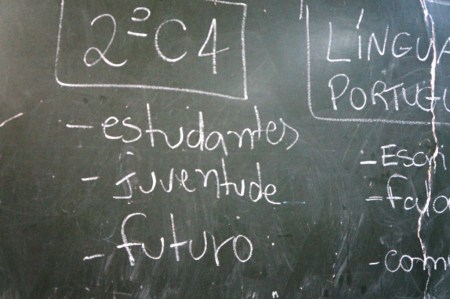 2º C4
- estudantes
- juventude
- futuro
LÍNGUA
PORTUGU
- Escri
- Fala
- comu